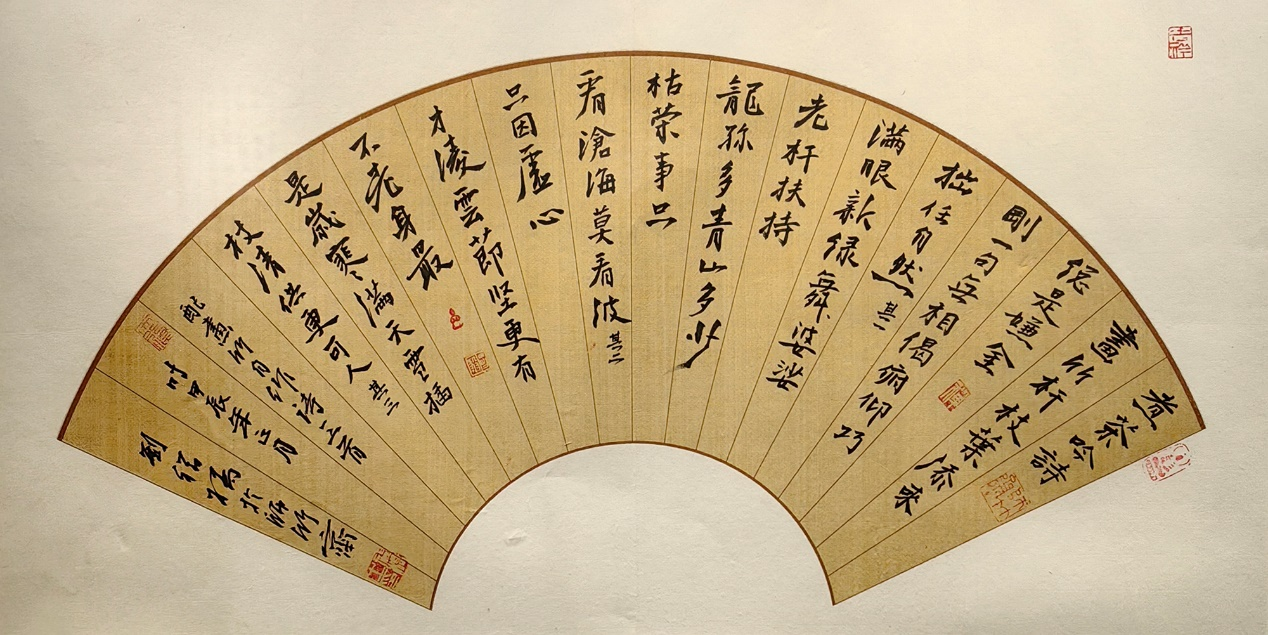 煮茶吟詩
畫竹杆枝葉添來
總是嫌金
剛一句無相偈俯仰巧
拙任自然 其一
滿眼新绿舞婆娑
老杆扶持
龍孫多青山多少
枯荣事只
看滄海莫看波 其二
只因虛心
才淩雲節坚更有
不老身最
是歲寒滿天雪插
枝清供更可人 其三
配畫竹自作詩三首
时甲辰年六月
劉紹 於浴竹齋